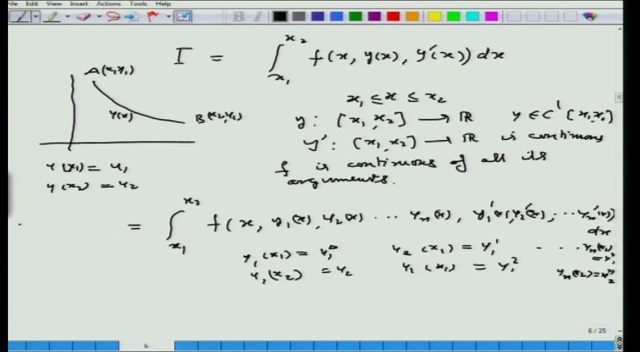 File Edit View Insert Actions Tools Help
I = ∫_{x_1}^{x_2} f(x, y(x), y'(x)) dx
A(x_1,y_1)
y(x)
B(x_2,y_2)
x_1 ≤ x ≤ x_2
y : [x_1, x_2] → ℝ y ∈ C' [x_1, x_2]
y' : [x_1, x_2] → ℝ is continuous
f is continuous of all its
arguments.
y(x_1) = y_1
y(x_2) = y_2
= ∫_{x_1}^{x_2} f(x, y_1(x), y_2(x) ... y_n(x), y_1'(x), y_2'(x), ... y_n'(x))
dx
y_1(x_1) = y_2(x_1) = y_1' ...
y_1(x_2) = y_2
6 / 25
6